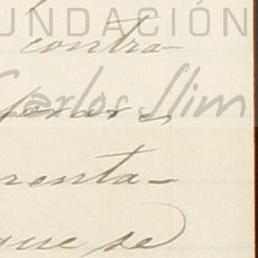 FUNDACIÓN
contra-
Carlos Slim
renta-
que se